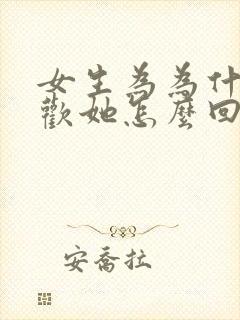 女生為為什
歡她怎麼回
安喬拉